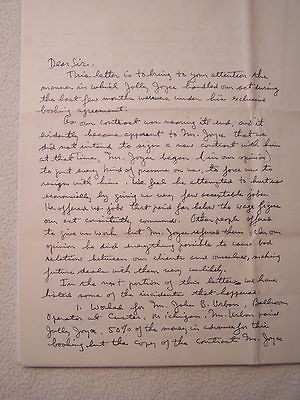 Dear Sir,
This letter is to bring to your attention the
manner in which Jolly Joyce handled our act during
the last few months we were under his exclusive
booking agreement.
As our contract was nearing its end, and it
evidently became apparent to Mr. Joyce that we
did not intend to sign a new contract with him
at that time, Mr. Joyce began (in our opinion)
to put every kind of pressure on us, to force us to
resign with him. We feel he attempted to hurt us
economically by giving us very few acceptable jobs.
He offered us jobs that paid far below the wage figure
our act consistently commands. Other people offered
to give us work but Mr. Joyce refused them. In our
opinion he did everything possible to cause bad
relations between our clients and ourselves, making
future deals with them very unlikely.
In the next portion of this letter we have
listed some of the incidents that happened.
1. Worked for Mr. John B. Urban, Ballroom
Operator at Custer, Michigan. Mr. Urban paid
Jolly Joyce, 50% of the money in advance for this
booking but the copy of the contract Mr. Joyce